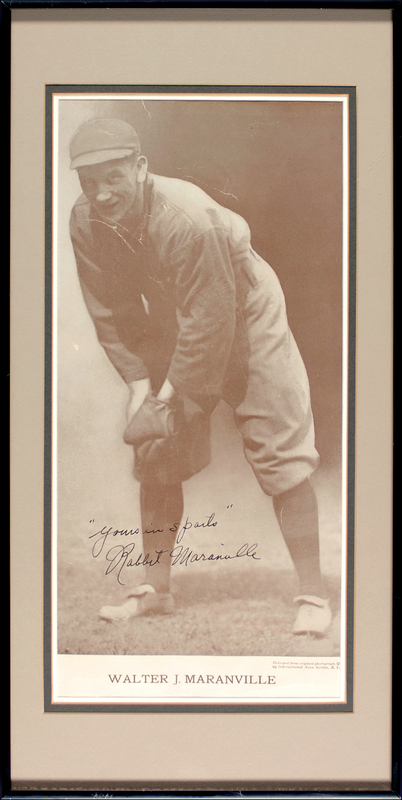 "Yours in Sports"
Rabbit Maranville
Pictured from original photograph ©
by International News Service, N. Y.
WALTER J. MARANVILLE